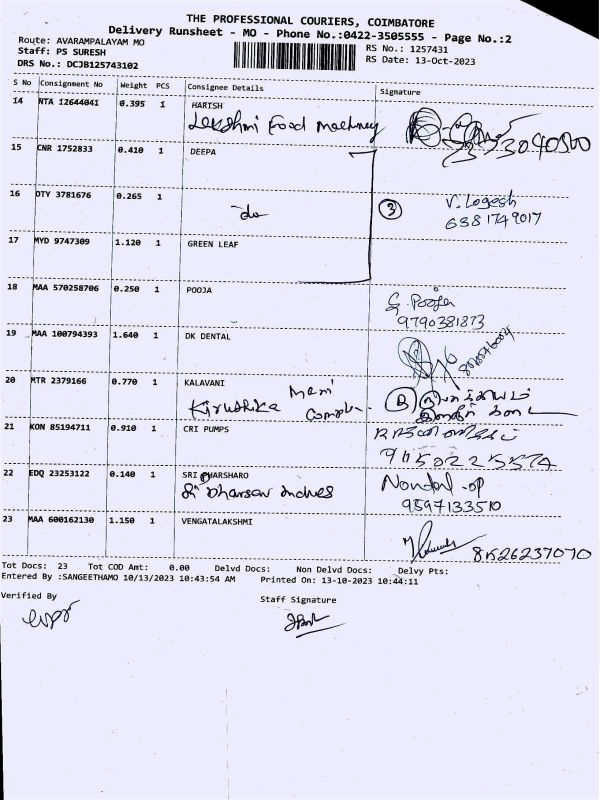 THE PROFESSIONAL COURIERS, COIMBATORE
Delivery Runsheet - MO - Phone No.:0422-3505555 - Page No.:2
Route: AVARAMPALAYAM MO
RS No.: 1257431
Staff: PS SURESH
RS Date: 13-Oct-2023
DRS No.: DCJB125743102
S No Consignment No Weight PCS Consignee Details Signature
14 NTA 12644041 0.395 1 HARISH
Lakshmi Food
15 CNR 1752833 0.410 1 DEEPA
16 DTY 3781676 0.265 1
do 3 V. Logesh
6381749017
17 MYD 9747309 1.120 1 GREEN LEAF
18 MAA 570258706 0.250 1 POOJA
G. Pooja
9790381873
19 MAA 100794393 1.640 1 DK DENTAL
20 MTR 2379166 0.770 1 KALAVANI
Kirushika Mani
21 KON 85194711 0.910 1 CRI PUMPS
22 EDQ 23253122 0.140 1 SRI DHARSHARO
9597133510
23 MAA 600162130 1.150 1 VENGATALAKSHMI
8526237070
Tot Docs: 23 Tot COD Amt: 0.00 Delvd Docs: Non Delvd Docs: Delvy Pts:
Entered By :SANGEETHAMO 10/13/2023 10:43:54 AM Printed On: 13-10-2023 10:44:11
Verified By
Staff Signature